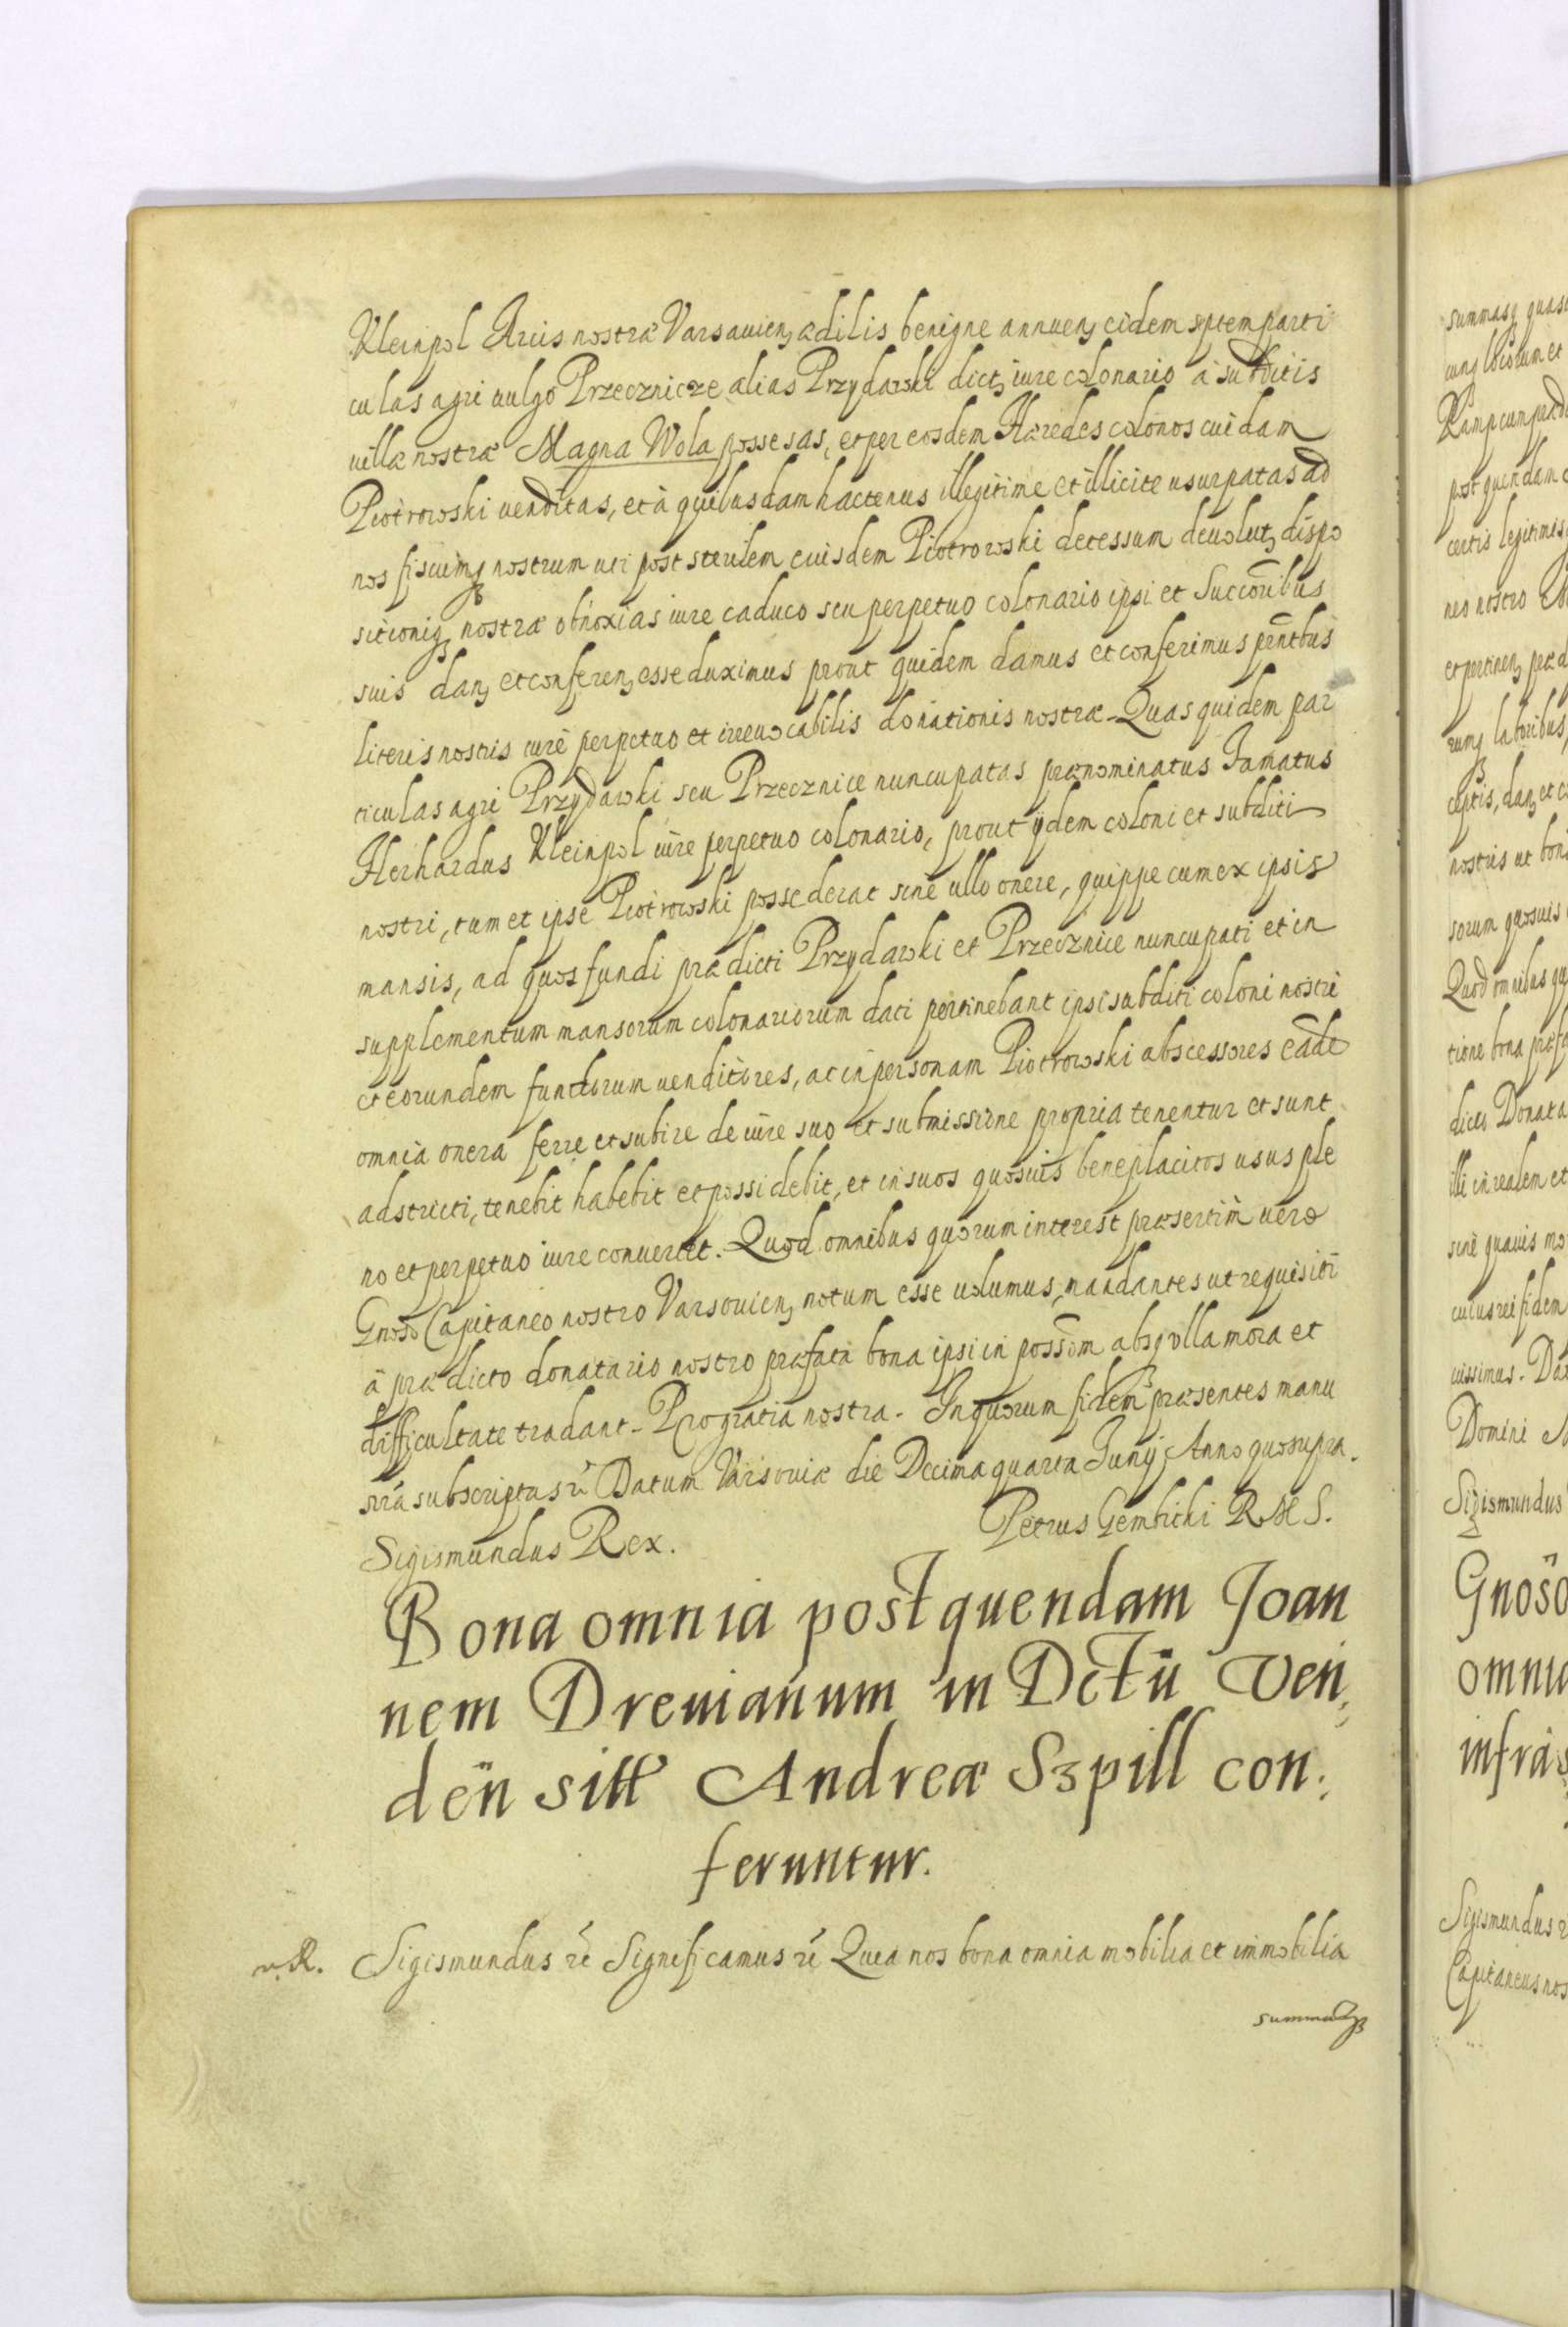 Kleinpol Arcis nostræ Varsauien, ædilis benigne annuen, eidem septem parti
culas agri uulgo Przecznicze alias Przydawki dict, iure colonario à subditis
uillæ nostræ Magna Wola possesas, et per eosdem Hæredes colonos cuidam
Piotrowski uenditas, et à quibusdam hactenus illegitime et illicite usurpatas ad
nos fiscumq nostrum uti post sterilem euisdem Piotrowski decessum deuolut, dispo
sitioniq nostræ obnoxias iure caduco seu perpetuo colonario ipsi et Succoribus
suis dan, et conferen, esse duximus prout quidem damus et conferimus pñtibus
literis nostris iure perpetuo et irreuocabilis donationis nostræ. Quas quidem par
ticulas agri Przydawki seu Przecznice nuncupatas prænominatus Famatus
Herhardus Kleinpol iure perpetuo colonario, prout ijdem coloni et subditi
nostri, tum et ipse Piotrowski possederat sine ullo onere, quippe cum ex ipsis
mansis, ad quos fundi prædicti Przydawki et Przecznice nuncupati et in
supplementum mansorum colonariorum dati pertinebant ipsi subditi coloni nostri
et eorundem fundorum uenditores, ac in personam Piotrowski abscessores eade
omnia onera ferre et subire de iure suo et submissione propria tenentur et sunt
adstricti, tenebit habebit et possidebit, et in suos quosuis beneplacitos usus ple
no et perpetuo iure conuertet. Quod omnibus quorum interest præsertim uero
Gnoso Capitaneo nostro Varsouien, notum esse uolumus, mandantes ut requisiti
à prædicto donatario nostro præfata bona ipsi in possōm absq ulla mora et
difficultate tradant. Pro gratia nostra. In quorum fidem præsentes manu
nrã subscriptas rc Datum Varsouiæ die Decima quarta Junij Anno quo supra.
Sigismundus Rex. Petrus Gembicki R M S.
Bona omnia post quendam Joan
nem Dreuianum in Dctũ Ven,
den̄ sitt Andreæ Szpill con,
feruntur.
n. R. Sigismundus rc Significamus rc Quia nos bona omnia mobilia et immobilia
summasq
summasq quas
cunq locorum et
Kamp cum præd
post quendam
certis legitimis
neo nostro
et pertinen, præd
rumq laboribus
ceptis, dan, et c
nostris ut bon
sorum quosuis
Quod omnibus qu
tione bona præfa
dicto Donata
illi in realem et
sine quauis mo
cuius rei fidem
cussimus. Da
Domini M
Sigismundus
Gnoso
omnia
infras
Sigismundus r
Capitaneus nos